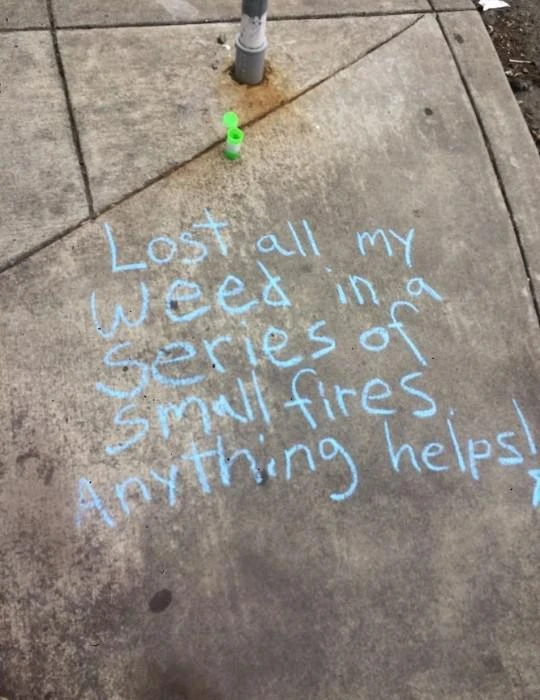 Lost all my
weed in a
series of
small fires.
Anything helps!